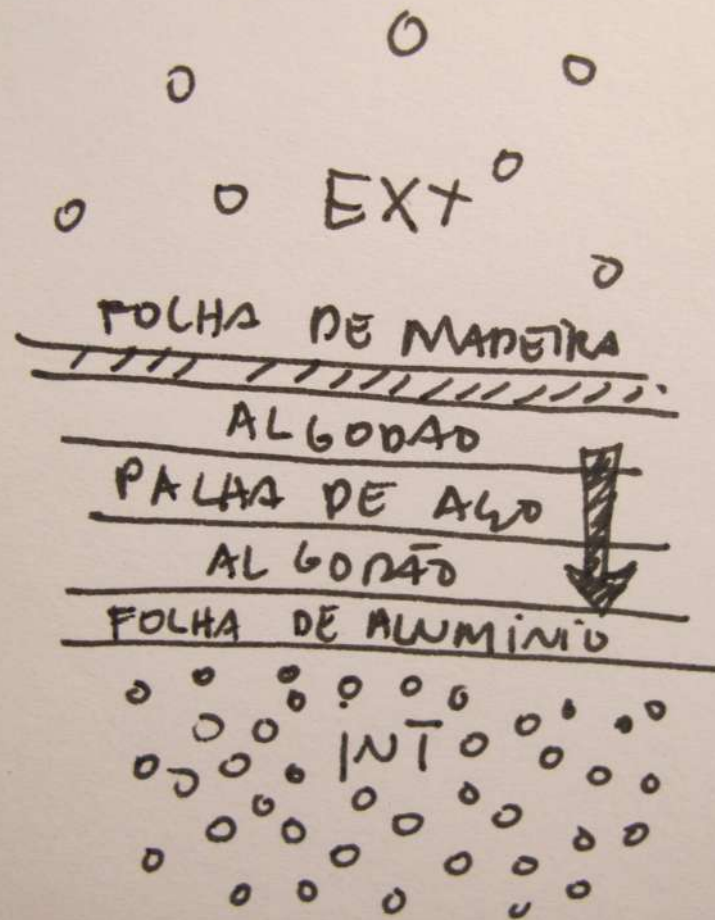 EXT
FOLHA DE MADEIRA
ALGODAO
PALHA DE AÇO
ALGODÃO
FOLHA DE ALUMÍNIO
INT